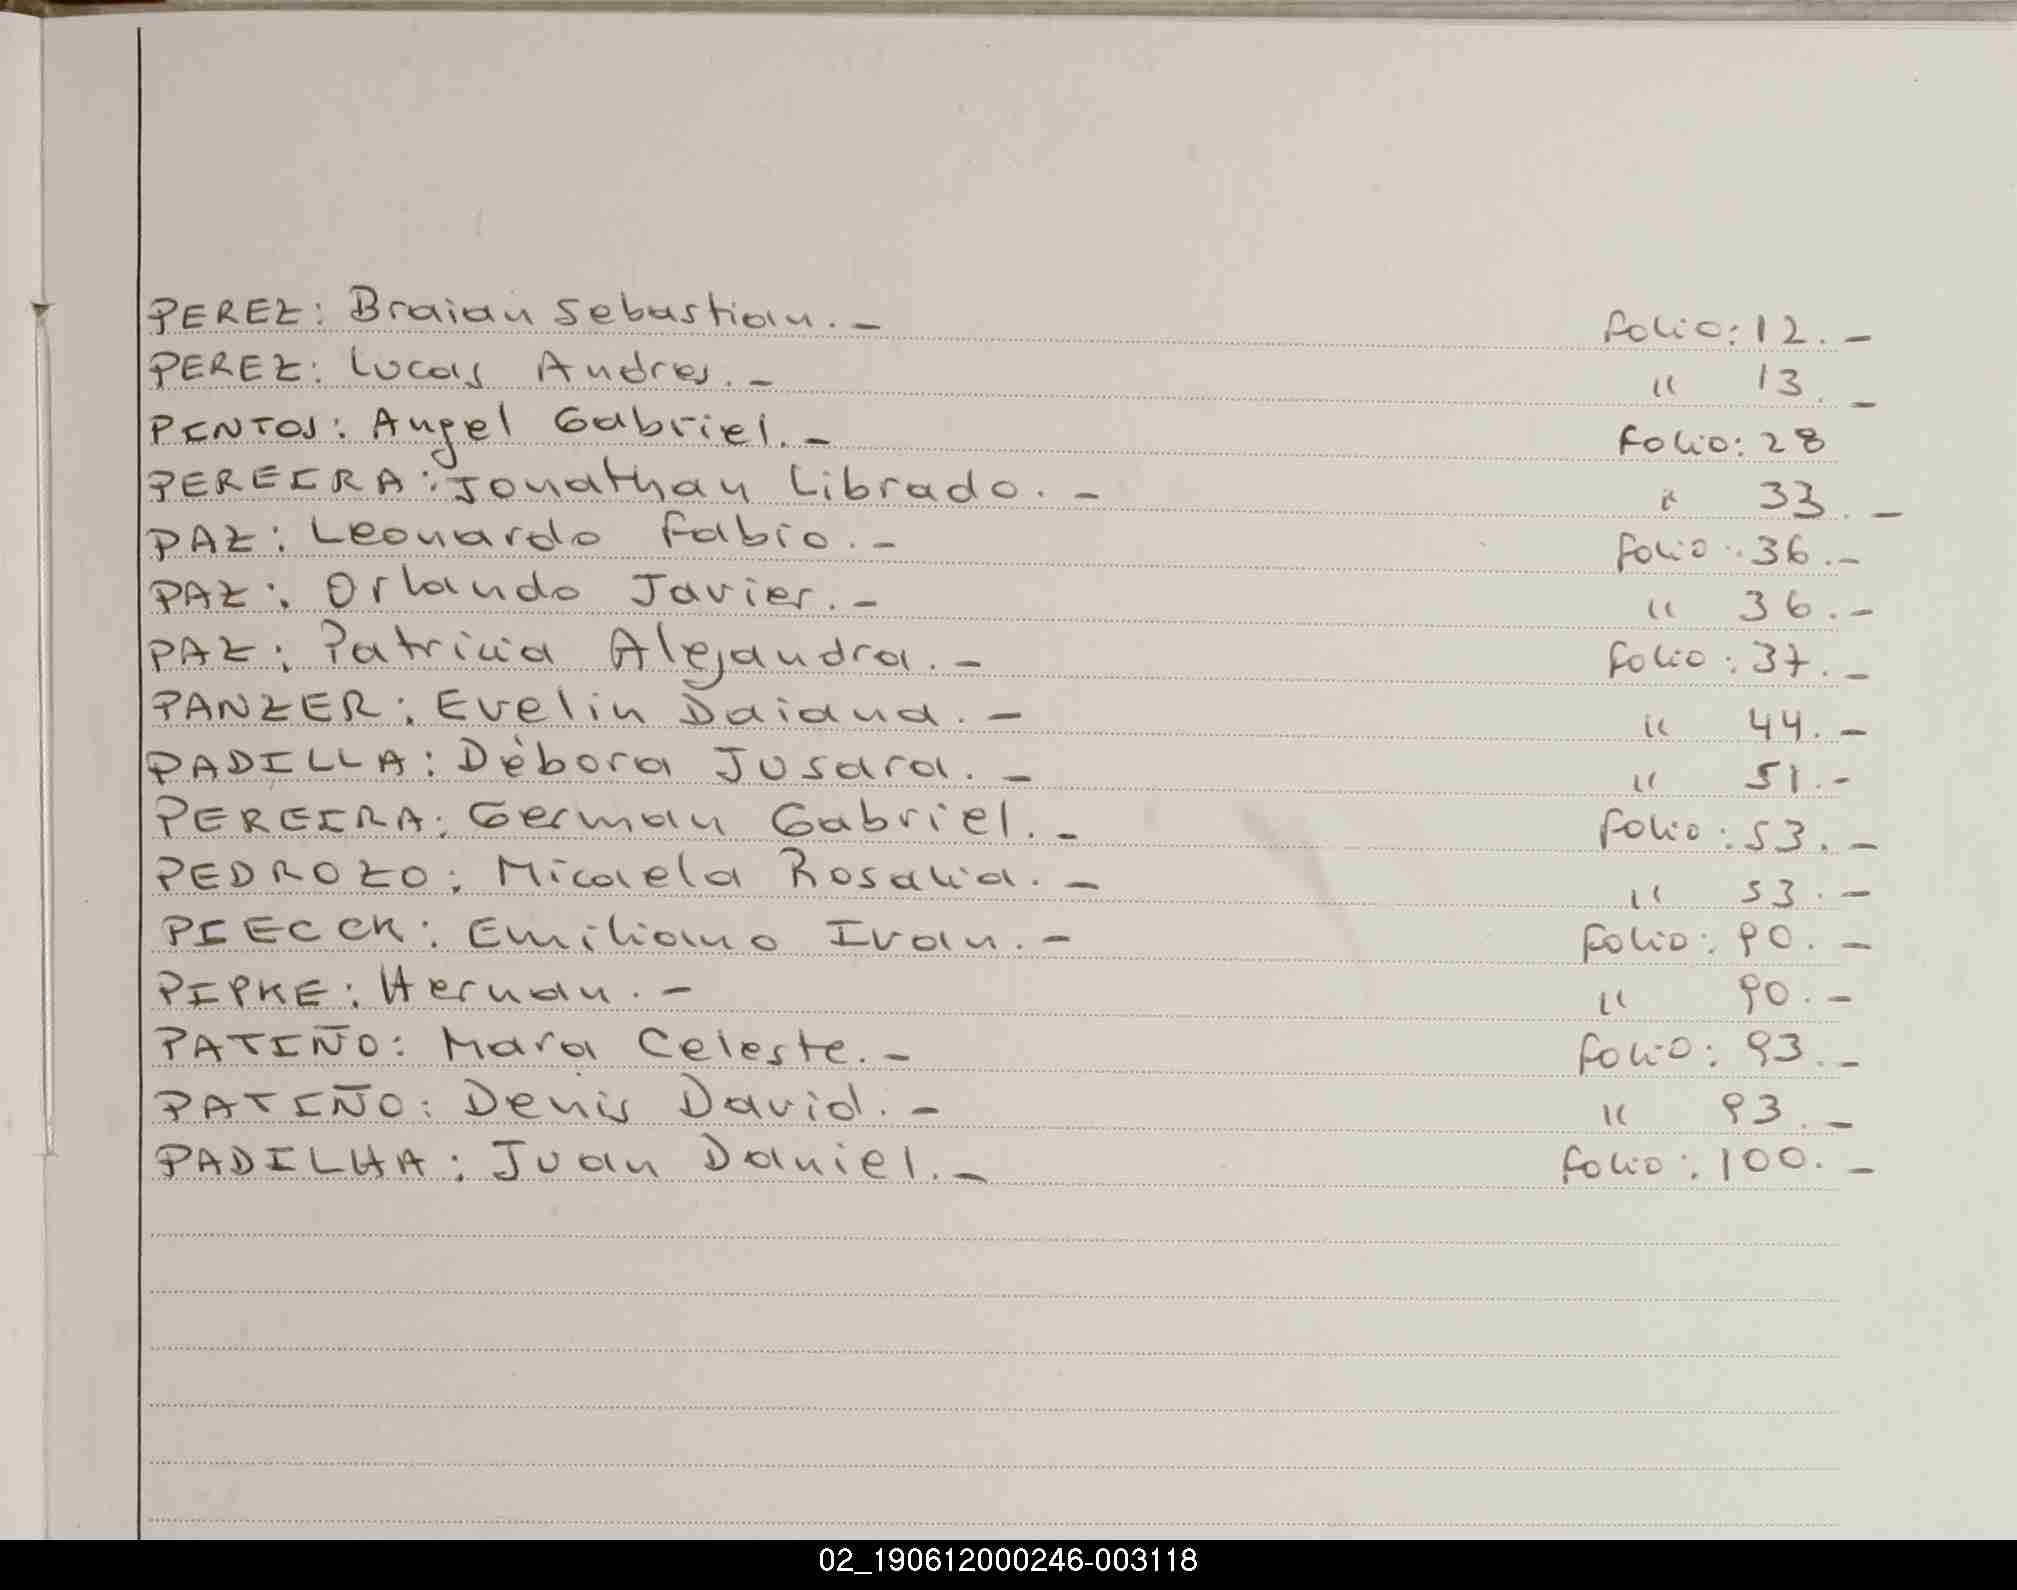 PEREZ: Braian Sebastian.- folio: 12.-
PEREZ: Lucas Andres.- " 13.-
PINTOS: Angel Gabriel.- Folio: 28
PEREIRA: Jonathan Librado.- " 33.-
PAZ: Leonardo Fabio.- folio: 36.-
PAZ: Orlando Javier.- " 36.-
PAZ: Patricia Alejandra.- folio: 37.-
PANZER: Evelin Daiana.- " 44.-
PADILLA: Débora Jusara.- " 51.-
PEREIRA: German Gabriel.- folio: 53.-
PEDROZO: Micaela Rosalia.- " 53.-
PIECCK: Emiliano Ivan.- folio: 90.-
PIPKE: Hernan.- " 90.-
PATIÑO: Mara Celeste.- folio: 93.-
PATIÑO: Denis David.- " 93.-
PADILHA: Juan Daniel.- folio: 100.-
02_190612000246-003118